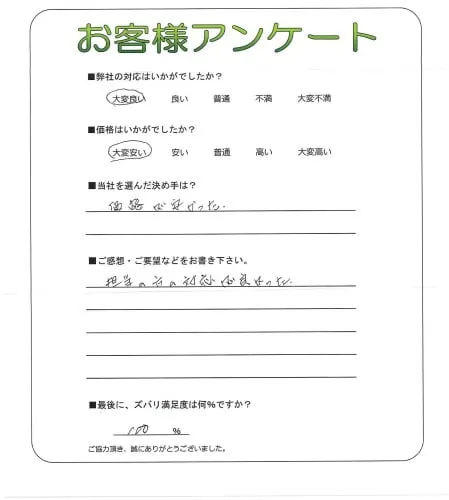 お客様アンケート
■弊社の対応はいかがでしたか?
大変良い 良い 普通 不満 大変不満
■価格はいかがでしたか?
大変安い 安い 普通 高い 大変高い
■当社を選んだ決め手は?
価格が安かった.
■ご感想・ご要望などをお書き下さい。
担当の方の対応が良かった.
■最後に、ズバリ満足度は何%ですか?
100 %
ご協力頂き、誠にありがとうございました。